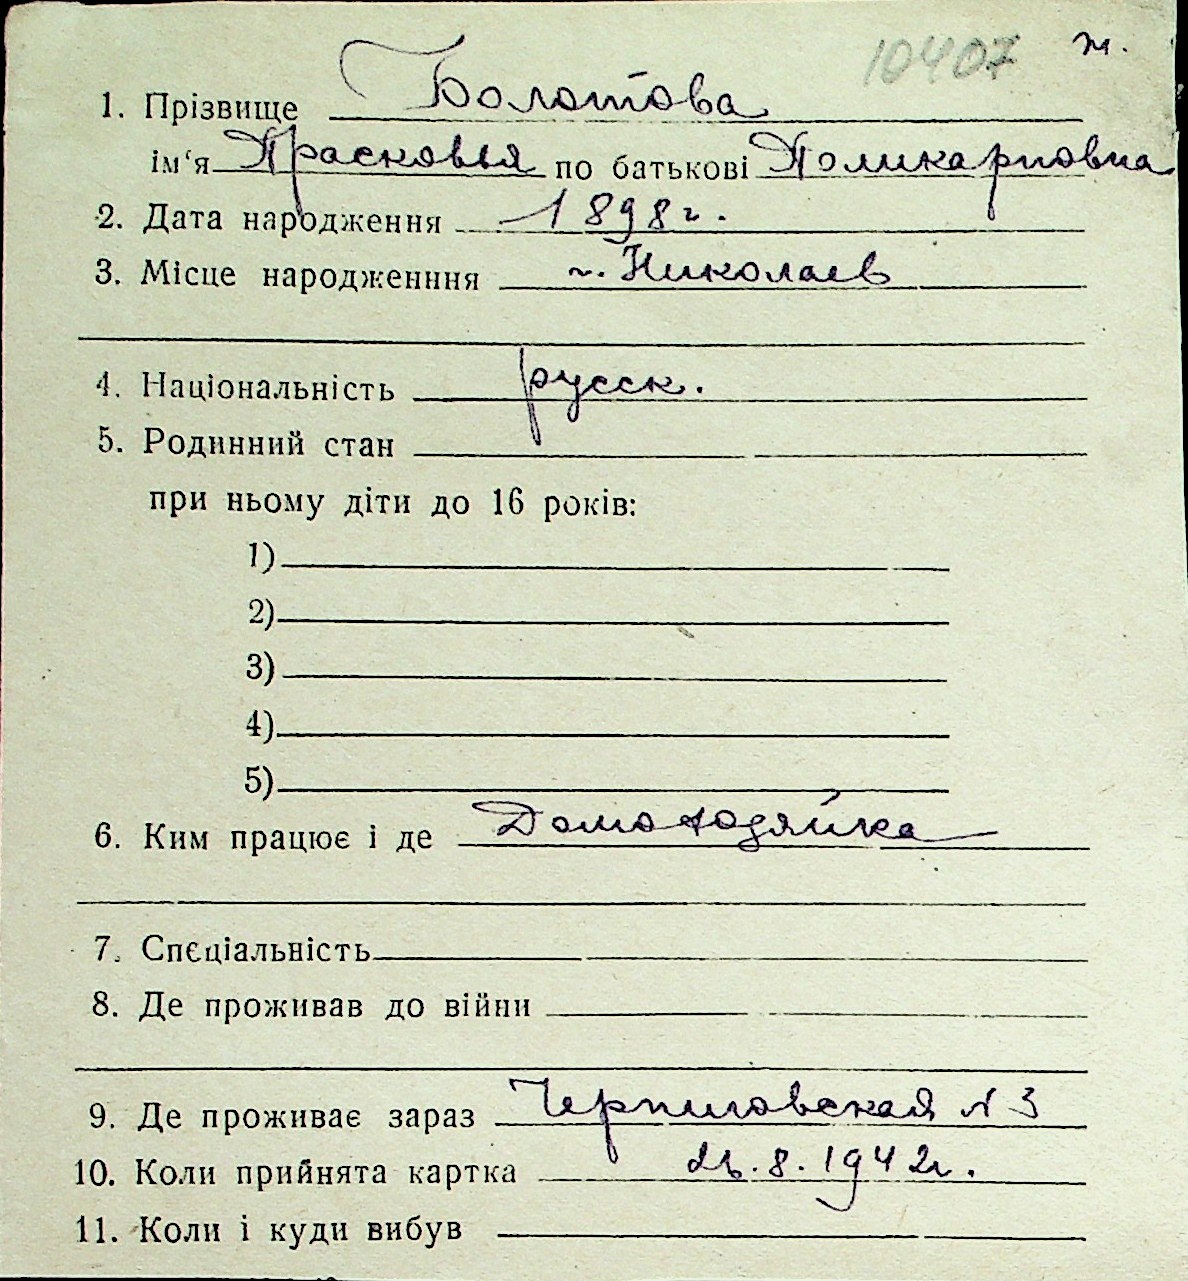 10407 ж.
1. Прізвище Болотова
ім'я Прасковья по батькові Поликарповна
2. Дата народження 1898 г.
3. Місце народженння г. Николаев
4. Національність русск.
5. Родинний стан
при ньому діти до 16 років:
1)
2)
3)
4)
5)
6. Ким працює і де Домохозяйка
7. Спєціальність
8. Де проживав до війни
9. Де проживає зараз Черниговская № 3
10. Коли прийнята картка .8.1942г.
11. Коли і куди вибув